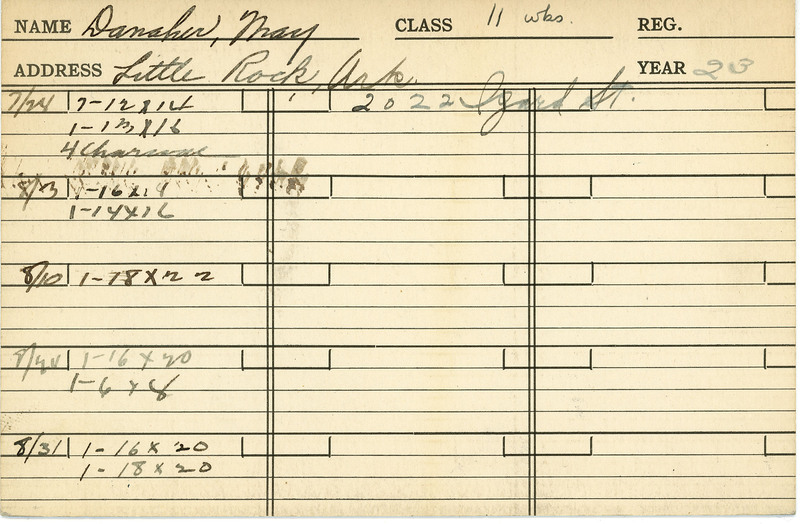 NAME Danaher, May CLASS 11 wks. REG.
ADDRESS Little Rock, Ark. YEAR 23
7/24 7-12x14 2022 Izard St.
1-13x16
4 Charcoal
8/3 1-16x14
1-14x16
8/10 1-18x22
8/21 1-16x20
1-6x8
8/31 1-16x20
1-18x20